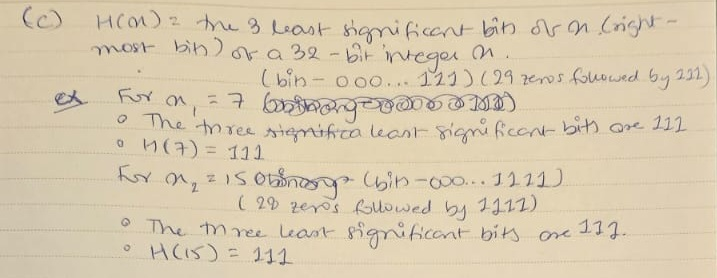 (c) H(n) = the 3 least significant bits of n (right-
most bin) of a 32-bit integer n.
(bin - 000... 111) (29 zeros followed by 111)
ex For n₁ = 7
o The three least significant bits are 111
o H(7) = 111
For n₂ = 15 (bin-000... 1111)
(28 zeros followed by 1111)
o The three least significant bits are 111.
o H(15) = 111